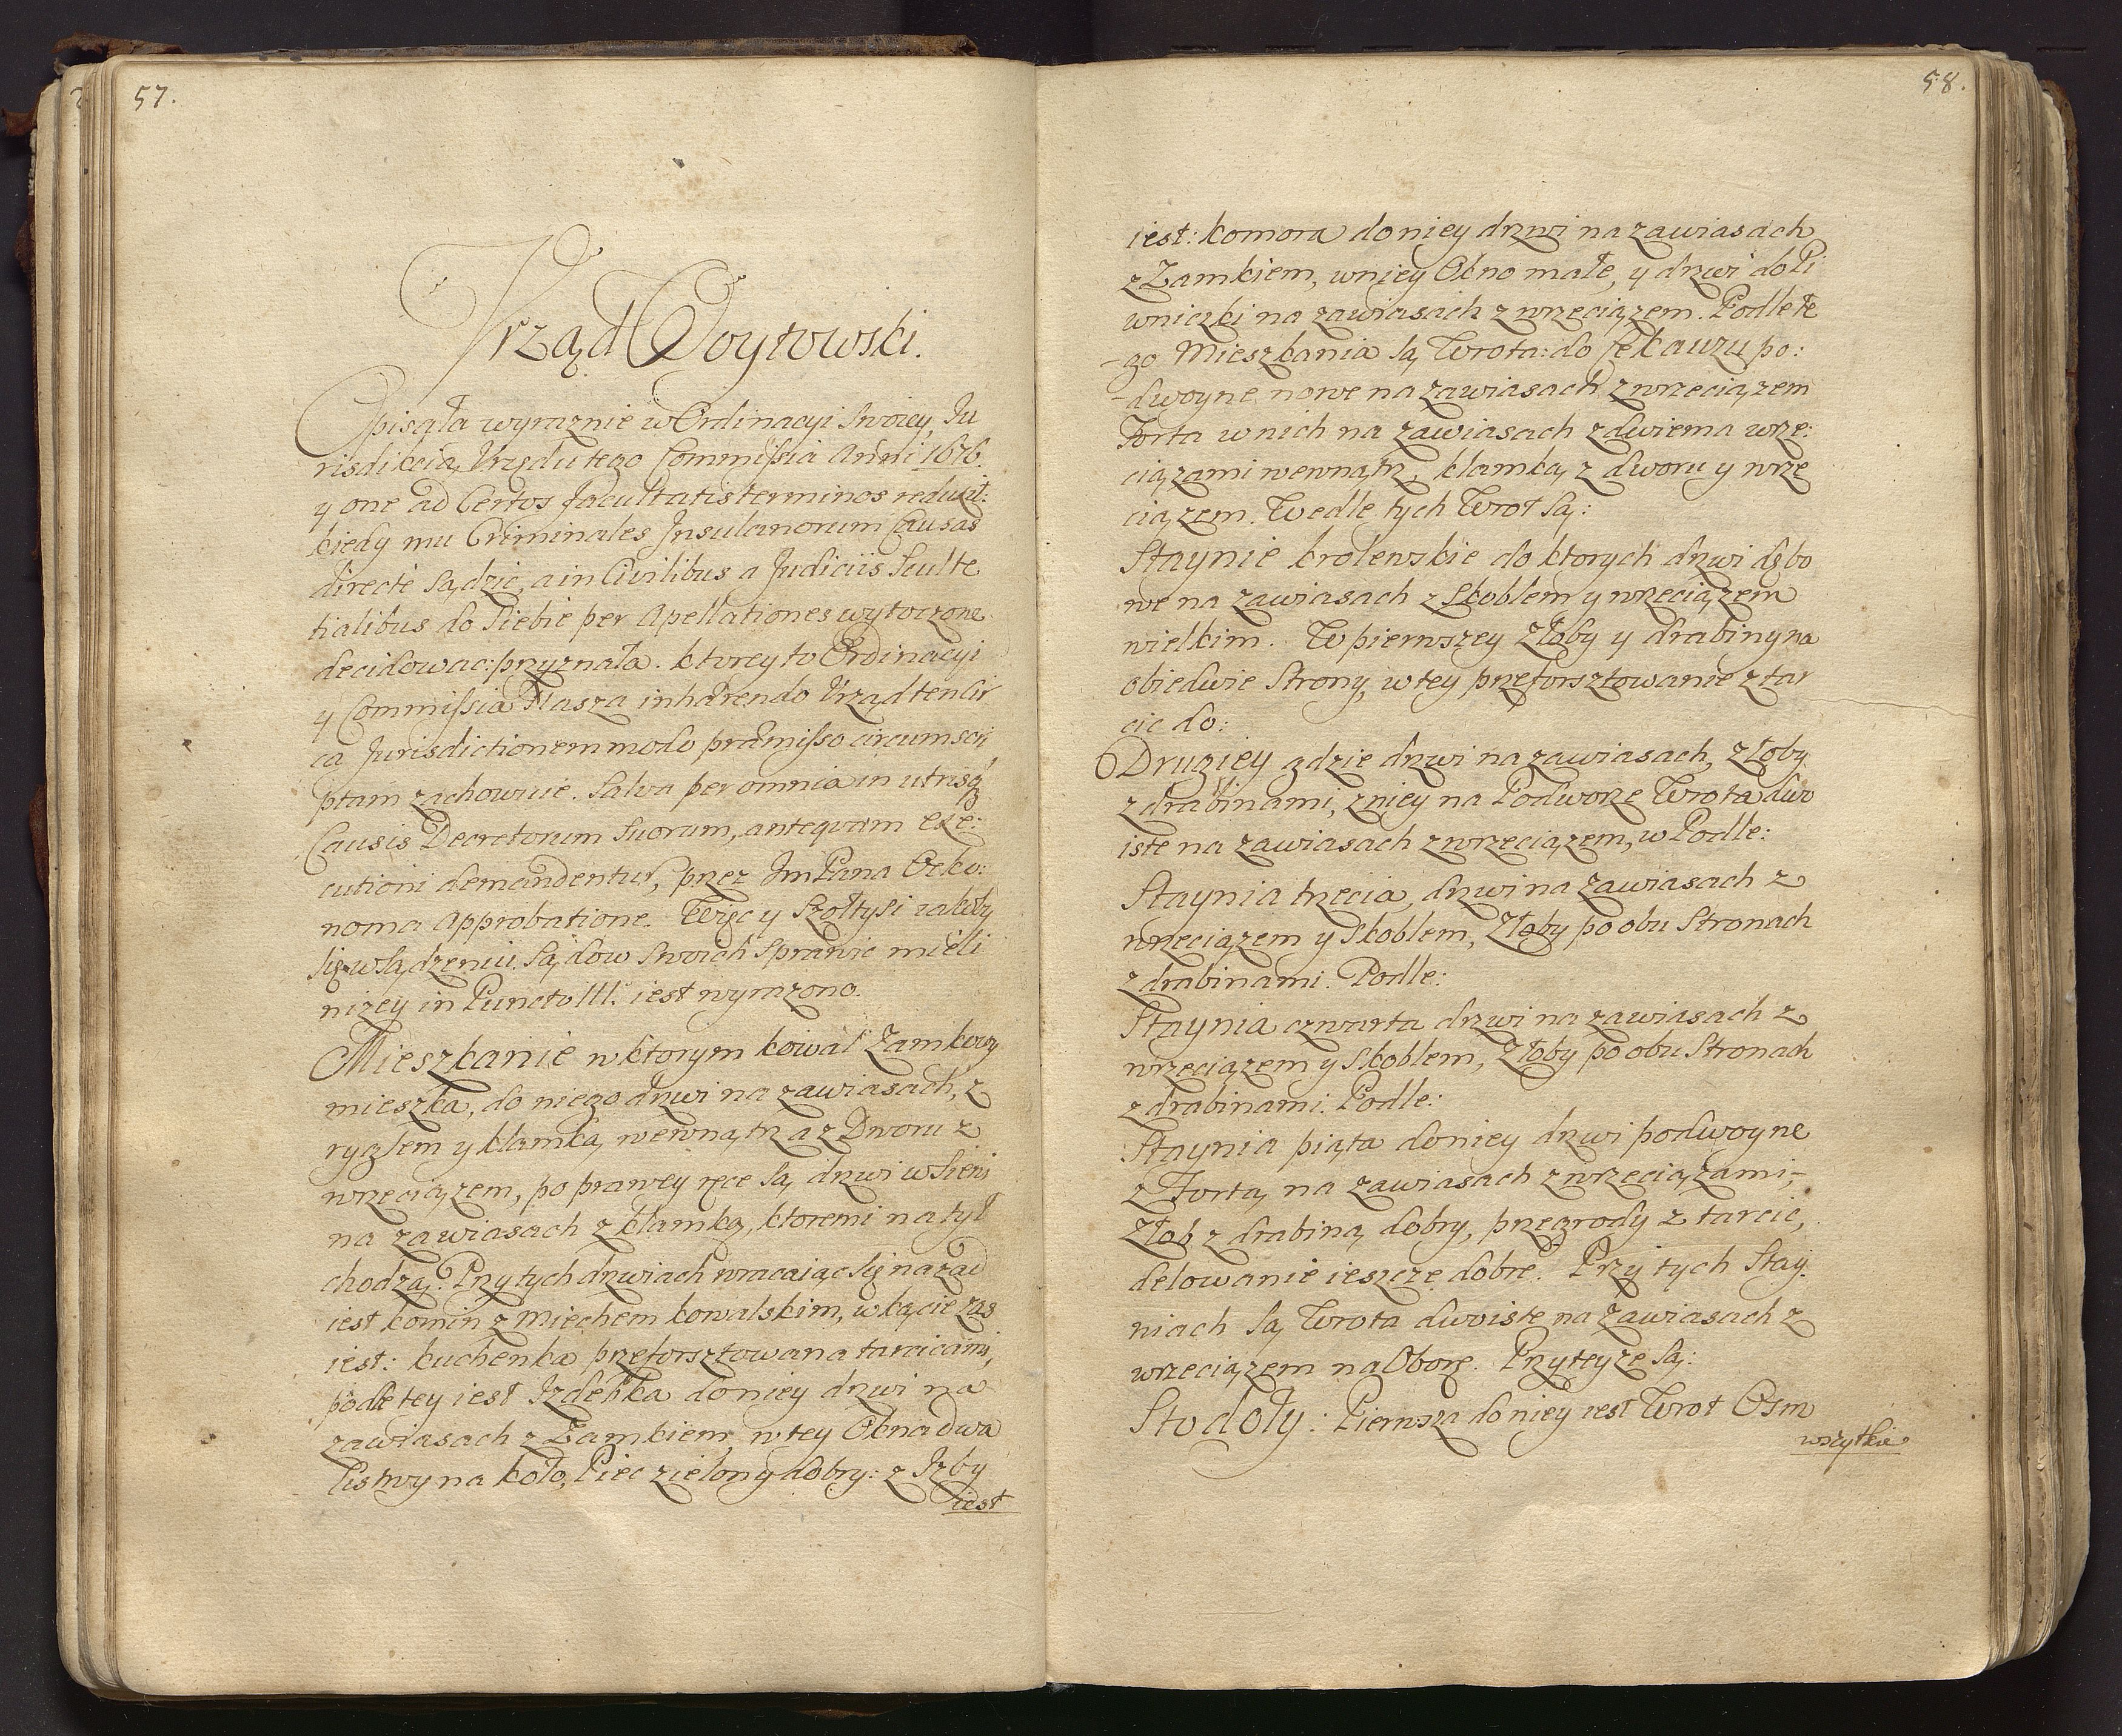 57.
Vrząd Woytowski.
Opisała wyraznie w Ordinacyi Swoiey, Ju
risdikcią Vrzędu tego Commissia Anni 1676.
y one ad Certos facultatis terminos reduxit:
kiedy mu Criminales Insulanorum Causas
directè Sądzic, a in Civilibus a Judiciis Sculte
tialibus do Siebie per Apellationes wytoczone
decidowac: przyznała. ktorey to Ordinacyi
y Commissia Nasza inhærendo Vrząd ten Cir
ca Jurisdictionem modo præmisso circumscri
ptam zachowuie. Salva per omnia in utrisq
Causis Decretorum Suorum, antequam exe:
cutioni demandentur, przez Jm Pana Oeko:
noma Approbatione. Więc y Szołtysi iakoby
Się w Sądzeniu Sądow Swoich Sprawic mieli
niżey in Puncto III. iest wyrażono.
Mieszkanie w ktorym kowal Zamkowy
mieszka, do niego drzwi na zawiasach, z
ryglem y klamką wewnątrz a z Dworu z
wrzeciązem, po prawey ręce Są drzwi w Sieni
na zawiasach z klamką, ktoremi na tył
chodzą. Przy tych drzwiach wracaiąc Się nazad
iest komin z Miechem kowalskim, w kącie zas
iest: kuchenka przeforsztowana tarcicami,
podle tey iest Izdebka do niey drzwi na
zawiasach z Zamkiem, w tey Okna dwa
Listwy na koło, Piec zielony dobry: z Izby
iest
58.
iest: komora do niey drzwi na zawiasach
z Zamkiem, w niey Okno małe, y drzwi do Pi
wniczki na zawiasach z wrzeciązem. Podle te
go Mieszkania Są Wrota: do Rekauzu po:
dwoyne nowe na zawiasach z wrzeciązem
Forta w nich na zawiasach z dwiema wrze:
ciązami wewnątrz, klamką z dworu y wrze
ciązem. Wedle tych Wrot Są:
Staynie krolewskie do ktorych drzwi dębo
we na zawiasach z Skoblem y wrzeciązem
wielkim. W pierwszey Złoby y drabiny na
obiedwie Strony, w tey przeforsztowanie z tar
cic do:
Drugiey gdzie drzwi na zawiasach, złoby
z drabinami, z niey na Podworze Wrota dwo
iste na zawiasach z wrzeciązem, w Podle:
Staynia trzecia, drzwi na zawiasach z
wrzeciązem y Skoblem, Złoby po obu Stronach
z drabinami. Podle:
Staynia czwarta drzwi na zawiasach z
wrzeciązem y Skoblem, Złoby po obu Stronach
z drabinami. Podle:
Staynia piąta do niey drzwi podwoyne
z Fortą na zawiasach z wrzeciązami,
Złob z drabiną dobry, przegrody z tarcic,
delowanie ieszcze dobre. Przy tych Stay
niach Są Wrota dwoiste na zawiasach z
wrzeciązem na Oborę. Przy teyze Są:
Stodoły: Pierwsza do niey iest Wrot Osm
wszytkie